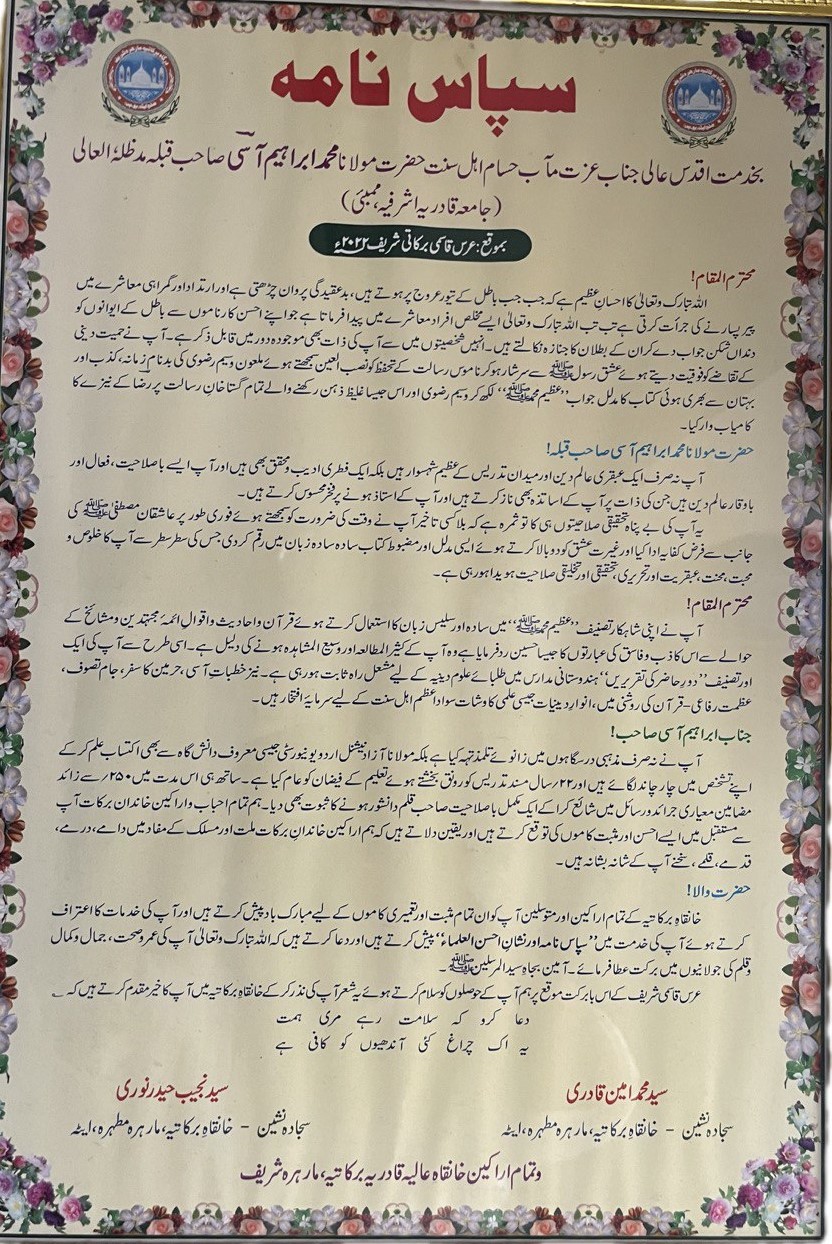 سپاس نامہ
بخدمت اقدس عالی جناب عزت مآب حسام اہل سنت حضرت مولانا محمد ابراہیم آسی صاحب قبلہ مدظلہٗ العالی
(جامعہ قادریہ اشرفیہ، ممبئی)
بموقع: عرس قاسمی برکاتی شریف ۲۰۲۲ء
محترم المقام!
اللہ تبارک وتعالیٰ کا احسانِ عظیم ہے کہ جب جب باطل کے تیور عروج پر ہوتے ہیں، بدعقیدگی پروان چڑھتی ہے اور ارتداد اور گمراہی معاشرے میں
پیر پسارنے کی جرأت کرتی ہے تب تب اللہ تبارک وتعالیٰ ایسے مخلص افراد معاشرے میں پیدا فرماتا ہے جو اپنے احسن کارناموں سے باطل کے ایوانوں کو
دنداں شکن جواب دے کر ان کے بطلان کا جنازہ نکالتے ہیں۔ انہیں شخصیتوں میں سے آپ کی ذات بھی موجودہ دور میں قابل ذکر ہے۔ آپ نے حمیت دینی
کے تقاضے کو فوقیت دیتے ہوئے عشق رسول ﷺ سے سرشار ہو کر ناموس رسالت کے تحفظ کو نصب العین سمجھتے ہوئے ملعون وسیم رضوی کی بدنام زمانہ، کذب اور
بہتان سے بھری ہوئی کتاب کا مدلل جواب ’’عظیم محمد ﷺ‘‘ لکھ کر وسیم رضوی اور اس جیسا غلیظ ذہن رکھنے والے تمام گستاخانِ رسالت پر رضا کے نیزے کا
کامیاب وار کیا۔
حضرت مولانا محمد ابراہیم آسی صاحب قبلہ!
آپ نہ صرف ایک عبقری عالم دین اور میدان تدریس کے عظیم شہسوار ہیں بلکہ ایک فطری ادیب و محقق بھی ہیں اور آپ ایسے باصلاحیت، فعال اور
باوقار عالم دین ہیں جن کی ذات پر آپ کے اساتذہ بھی ناز کرتے ہیں اور آپ کے استاذ ہونے پر فخر محسوس کرتے ہیں۔
یہ آپ کی بے پناہ تحقیقی صلاحیتوں ہی کا تو ثمرہ ہے کہ بلا کسی تاخیر آپ نے وقت کی ضرورت کو سمجھتے ہوئے فوری طور پر عاشقان مصطفیٰ ﷺ کی
جانب سے فرض کفایہ ادا کیا اور غیرت عشق کو دوبالا کرتے ہوئے ایسی مدلل اور مضبوط کتاب سادہ سادہ زبان میں رقم کر دی جس کی سطر سطر سے آپ کا خلوص و
محبت، محنت، عبقریت اور تحریری، تحقیقی اور تخلیقی صلاحیت ہویدا ہو رہی ہے۔
محترم المقام!
آپ نے اپنی شاہکار تصنیف ’’عظیم محمد ﷺ‘‘ میں سادہ اور سلیس زبان کا استعمال کرتے ہوئے قرآن و احادیث و اقوالِ ائمۂ مجتہدین و مشائخ کے
حوالے سے اس کاذب و فاسق کی عبارتوں کا جیسا حسین رد فرمایا ہے وہ آپ کے کثیر المطالعہ اور وسیع المشاہدہ ہونے کی دلیل ہے۔ اسی طرح سے آپ کی ایک
اور تصنیف ’’دور حاضر کی تقریریں‘‘ ہندوستانی مدارس میں طلبائے علوم دینیہ کے لیے مشعل راہ ثابت ہو رہی ہے۔ نیز خطبات آسی، حرمین کا سفر، جام تصوف،
عظمت رفاعی-قرآن کی روشنی میں، انوار دینیات جیسی علمی کاوشات سواد اعظم اہل سنت کے لیے سرمایۂ افتخار ہیں۔
جناب ابراہیم آسی صاحب!
آپ نے نہ صرف مذہبی درسگاہوں میں زانوئے تلمذ تہہ کیا ہے بلکہ مولانا آزاد نیشنل اردو یونیورسٹی جیسی معروف دانش گاہ سے بھی اکتساب علم کر کے
اپنے تشخص میں چار چاند لگائے ہیں اور ۲۲؍ سال مسند تدریس کو رونق بخشتے ہوئے تعلیم کے فیضان کو عام کیا ہے۔ ساتھ ہی اس مدت میں ۲۵۰؍ سے زائد
مضامین معیاری جرائد و رسائل میں شائع کرا کے ایک مکمل باصلاحیت صاحب قلم دانشور ہونے کا ثبوت بھی دیا۔ ہم تمام احباب و اراکین خاندان برکات آپ
سے مستقبل میں ایسے احسن اور مثبت کاموں کی توقع کرتے ہیں اور یقین دلاتے ہیں کہ ہم اراکین خاندانِ برکات ملت اور مسلک کے مفاد میں دامے، درمے،
قدمے، قلمے، سخنے آپ کے شانہ بشانہ ہیں۔
حضرت والا!
خانقاہ برکاتیہ کے تمام اراکین اور متوسلین آپ کو ان تمام مثبت اور تعمیری کاموں کے لیے مبارک باد پیش کرتے ہیں اور آپ کی خدمات کا اعتراف
کرتے ہوئے آپ کی خدمت میں ’’سپاس نامہ اور نشانِ احسن العلماء‘‘ پیش کرتے ہیں اور دعا کرتے ہیں کہ اللہ تبارک وتعالیٰ آپ کی عمر و صحت، جمال و کمال
و قلم کی جولانیوں میں برکت عطا فرمائے۔ آمین بجاہ سید المرسلین ﷺ۔
عرس قاسمی شریف کے اس بابرکت موقع پر ہم آپ کے حوصلوں کو سلام کرتے ہوئے یہ شعر آپ کی نذر کر کے خانقاہ برکاتیہ میں آپ کا خیر مقدم کرتے ہیں کہ ؎
دعا کرو کہ سلامت رہے مری ہمت
یہ اک چراغ کئی آندھیوں کو کافی ہے
سید محمد امین قادری
سید نجیب حیدر نوری
سجادہ نشین - خانقاہ برکاتیہ، مارہرہ مطہرہ، ایٹہ
سجادہ نشین - خانقاہ برکاتیہ، مارہرہ مطہرہ، ایٹہ
و تمام اراکین خانقاہ عالیہ قادریہ برکاتیہ، مارہرہ شریف